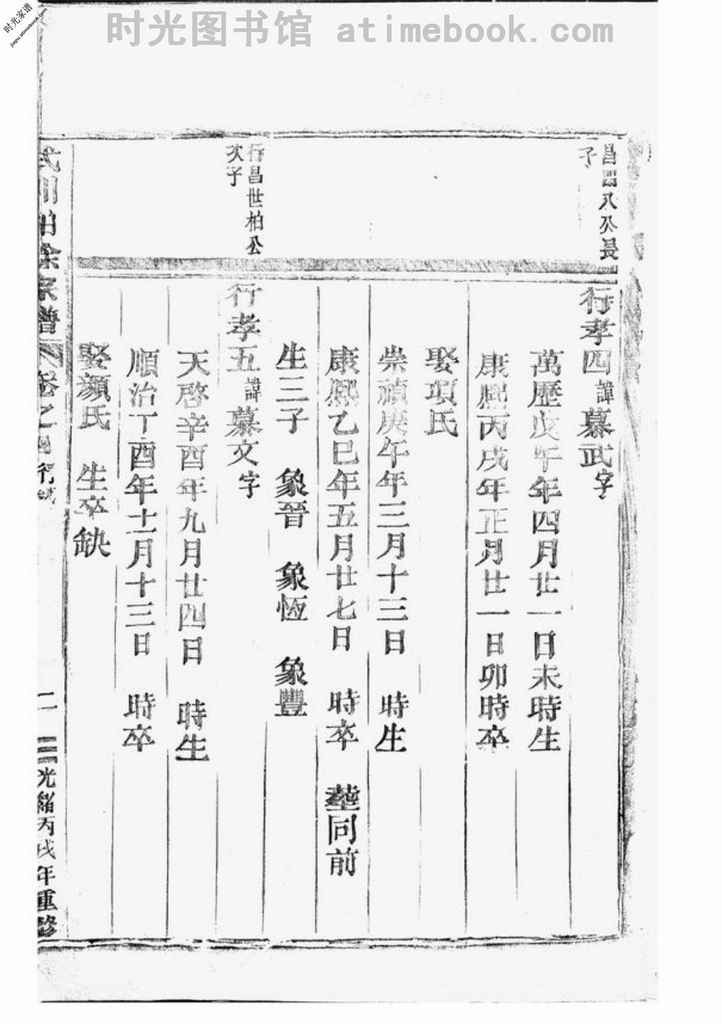 时光图书馆 atimebook.com
时光家谱
昌四八公長
子
行孝四諱慕武字
萬歷戊午年四月廿一日未時生
康熙丙戌年正月廿一日卯時卒
娶項氏
崇禎庚午年三月十三日 時生
康熙乙巳年五月廿七日 時卒 塟同前
生三子 象晉 象恆 象豐
行昌世柏公
次子
行孝五諱慕文字
天啓辛酉年九月廿四日 時生
順治丁酉年十一月十三日 時卒
娶顏氏 生卒缺
宗譜 卷之
二
光緒丙戌年重修